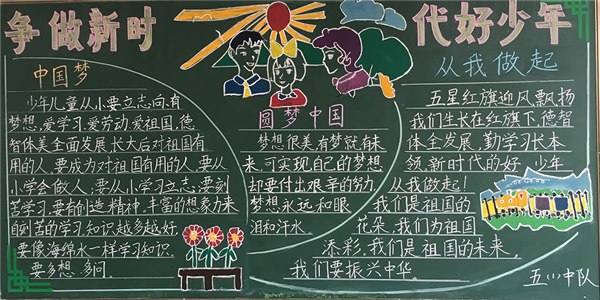 争做新时代好少年
中国梦
少年儿童从小要立志向,有
梦想,爱学习,爱劳动,爱祖国,德
智体美全面发展,长大后对祖国有
用的人,要成为对祖国有用的人,要从
小学会做人,要从小学习立志,要刻
苦学习,要有创造精神,丰富的想象力来
自刻苦的学习,知识越多越好,
要像海绵水一样学习知识,
要多想,多问。
圆梦中国
梦想很美,有梦就有未
来,可实现自己的梦想
却要付出艰辛的努力,
梦想永远和眼
泪和汗水。
从我做起
五星红旗迎风飘扬
我们生长在红旗下,德智
体全发展,勤学习长本
领,新时代的好少年
从我做起!
我们是祖国的
花朵,我们为祖国
添彩,我们是祖国的未来,
我们要振兴中华。
五(1)中队